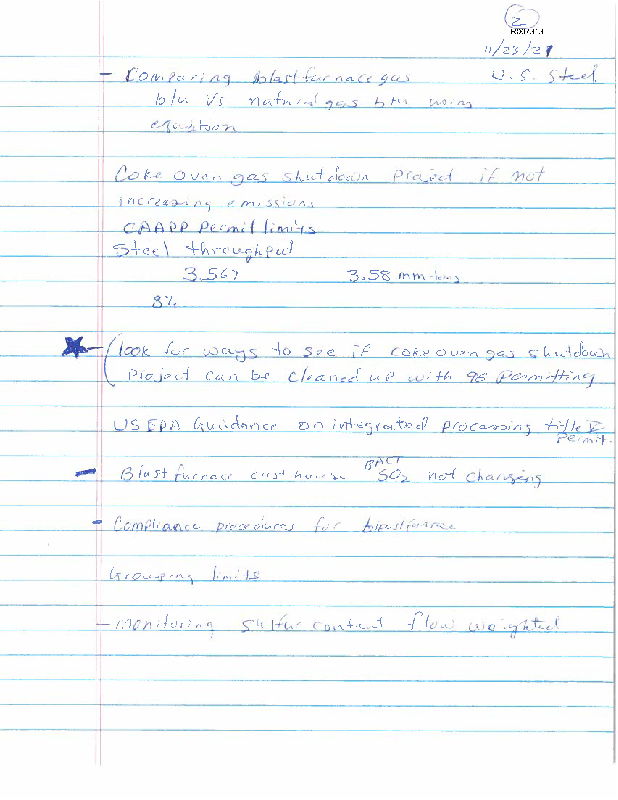 2
11/23/21
- Comparing blast furnace gas U.S. Steel
btu vs natural gas btu using
equation
Coke oven gas shutdown Project if not
increasing emissions
CAAPP Permit limits
Steel throughput
3.567 3.58 mm tons
8%
★ - (look for ways to see if coke oven gas shutdown
Project can be cleaned up with 98 Permitting
US EPA Guidance on integrated processing title V
Permit.
BACT
- Blast furnace cast house SO2 not changing
- Compliance procedures for blast furnace
Grouping limits
- Monitoring sulfur content flow weighted